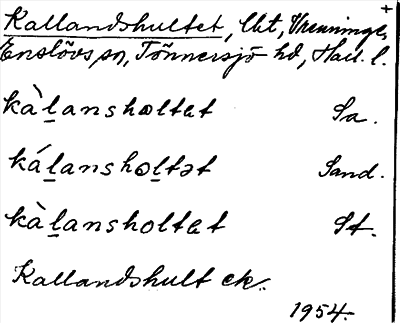 +
Kallandshultet, lht, Vrenninge,
Enslövs sn, Tönnersjö hd, Hall. l.
kàl̲ansholtet Sa.
kál̲anshol̲tət Sand.
kàl̲ansholtet St.
Kallandshult ek.
1954.